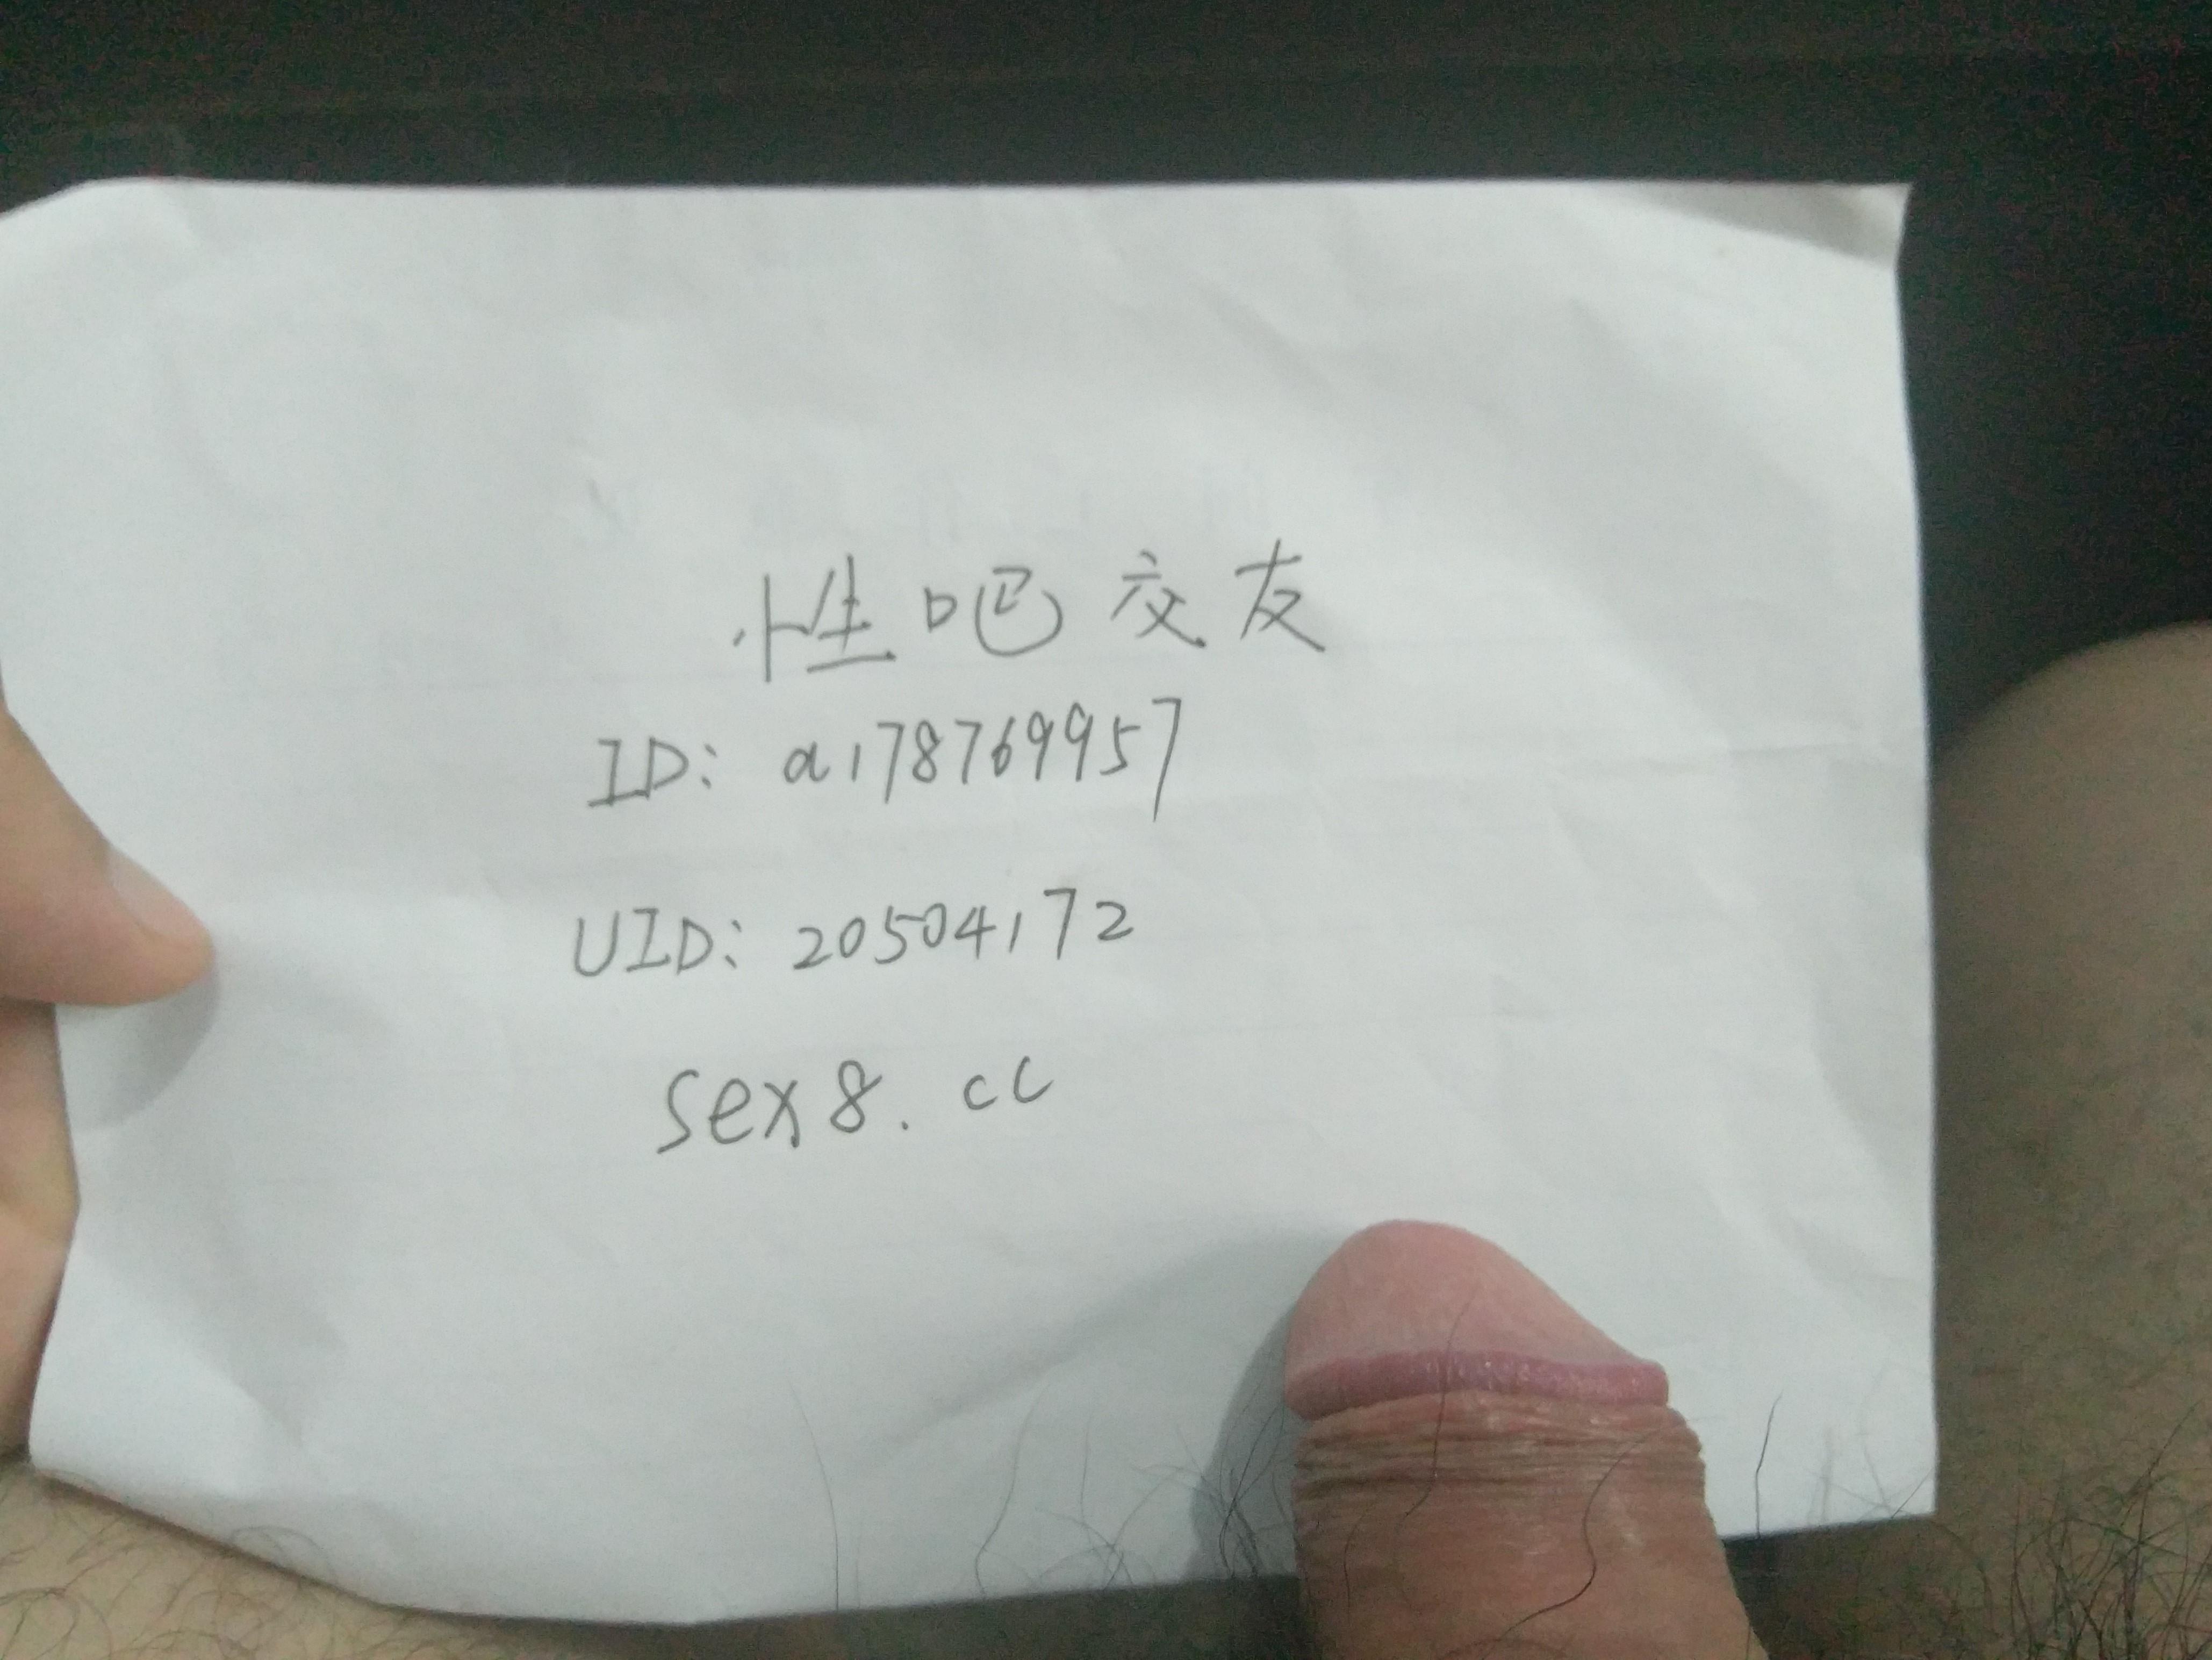 性吧交友
ID: a178769957
UID: 20504172
sex8.cc